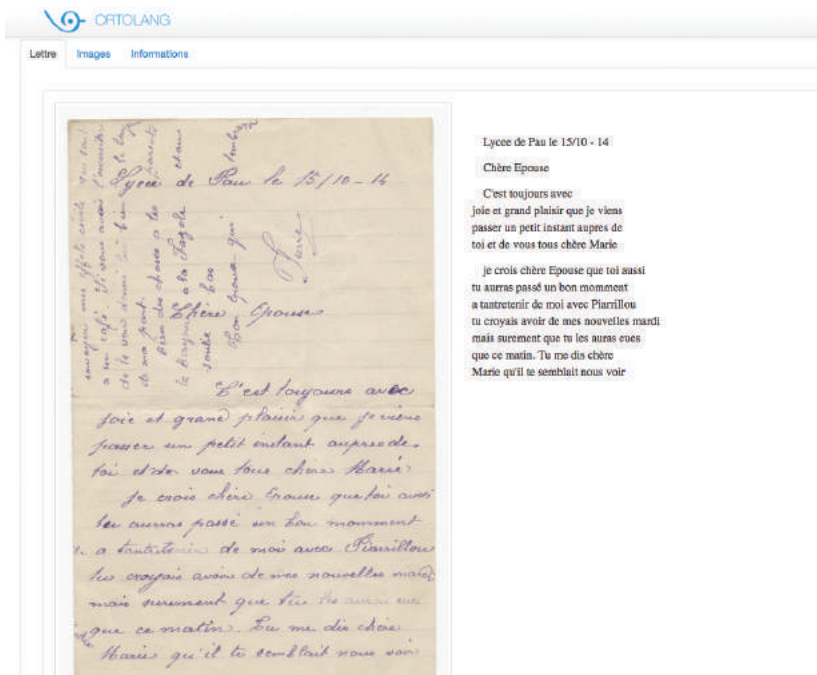 ORTOLANG
Lettre Images Informations
envoyer mes effets civils
a un café. Si vous avais l'occasion
de le voir donnai lui bien le bonjour
de ma part.
bien des choses a les parents
la
Ton Epoux qui
Pierre
Lycee de Pau le 15/10 - 14
Chère Epouse
C'est toujours avec
joie et grand plaisir que je viens
passer un petit instant aupres de
toi et de vous tous chère Marie
je crois chère Epouse que toi aussi
tu aurras passé un bon momment
a tantretenir de moi avec Piarrillou
tu croyais avoir de mes nouvelles mardi
mais surement que tu les auras eues
que ce matin. Tu me dis chère
Marie qu'il te semblait nous voir
Lycee de Pau le 15/10 - 14
Chère Epouse
C'est toujours avec
joie et grand plaisir que je viens
passer un petit instant aupres de
toi et de vous tous chère Marie
je crois chère Epouse que toi aussi
tu aurras passé un bon momment
a tantretenir de moi avec Piarrillou
tu croyais avoir de mes nouvelles mardi
mais surement que tu les auras eues
que ce matin. Tu me dis chère
Marie qu'il te semblait nous voir